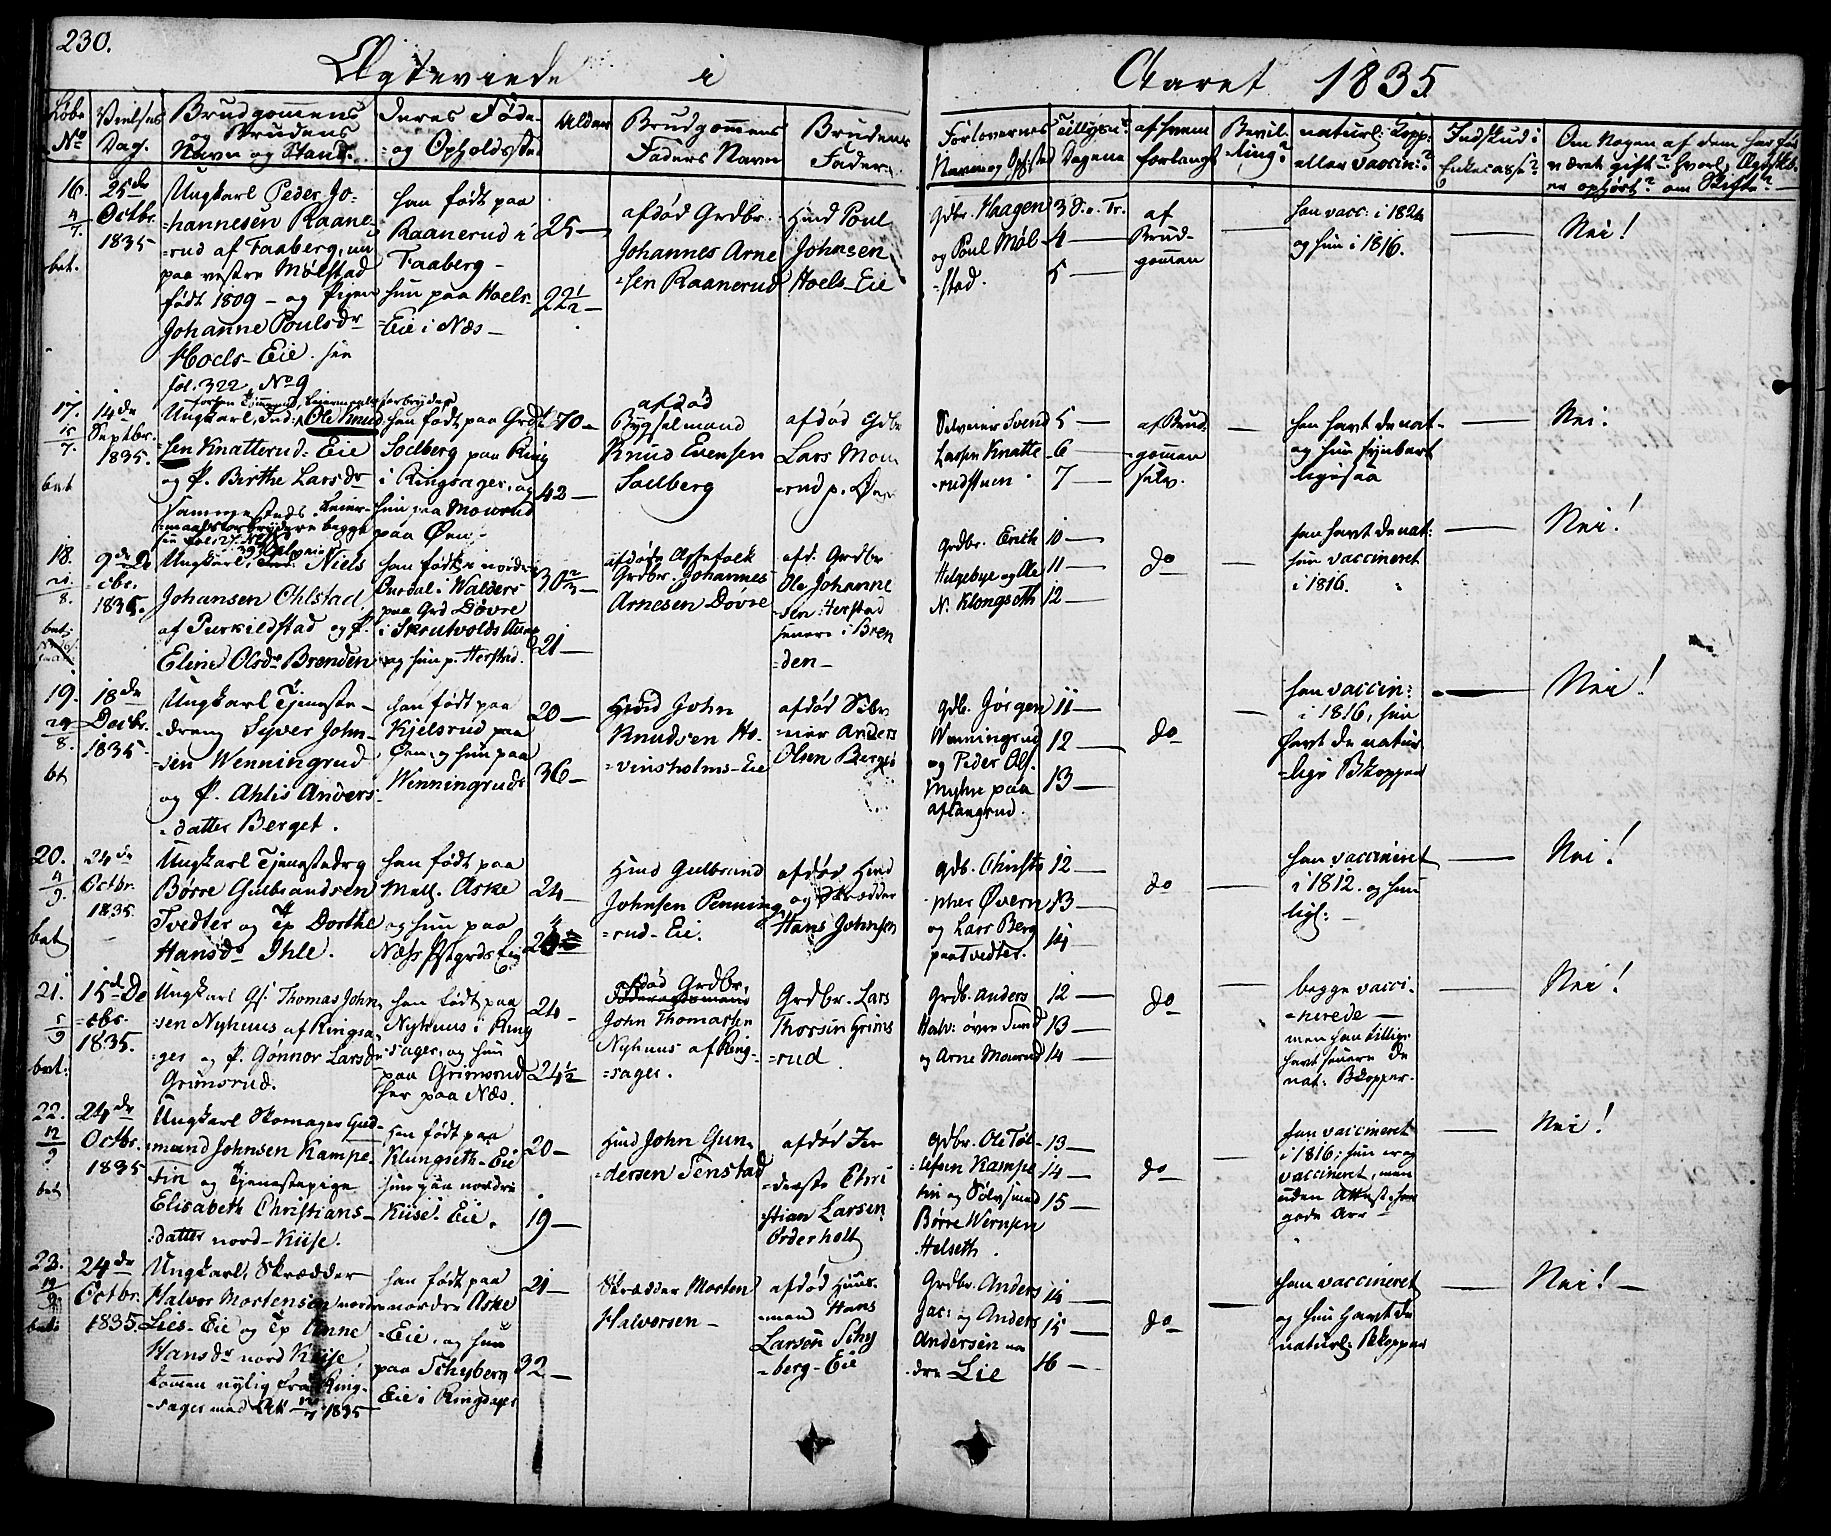 230.
Ægteviede i Aaret 1835
Løbe No
Vielses Dag.
Brudgommens
og Brudens
Navn og Stand.
deres Føde-
=og Opholdssted
Alder
Brudgommens
Faders Navn
Brudens
Fader
Forlovernes
Navn og Opst
Tillysn:
Dagene
af hvem
forlangt
Bevil-
ling?
naturl: Kopp:
eller vaccin:?
Indskud i
Enkecasse?
Om Nogen af dem har før
været gift? hvorl. Ægtesk.
er ophørt? om Skifte?
16.
4/7.
bet.
25de
Octbr.
1835
Ungkarl Peder Jo-
=hannesen Raane-
=rud af Faaberg, nu
paa vestre Mølstad
født 1809 - og Pigen
Johanne Poulsdr
Hoels-Eie. see
fol. 322, No 9
han født paa
Raanerud i
Faaberg -
hun paa Hoels-
=Eie i Næs -
25 -
22½ -
afdød Grdbr.
Johannes Arne
=sen Raanerud
Huusd Poul
Johnsen
Hoels-Eie
Gdbr. Haagen
og Poul Møl-
=stad.
3 S. e. Tr.
4 -
5 -
af
Brud-
gommen
han vacc: i 1824
og hun i 1816.
Nei!
17.
15/7.
bet
14de
Septbr.
1835.
Ungkarl, Ind: Ole Knud-
=sen Knatterud=Eie
og P. Birthe Larsdr
sammesteds. Leier-
=maalsforbrydere begge
han født paa Grd
Solberg paa Ring
i Ringsager, og
hun paa Mourud
paa Øen.
70 -
42 -
afdød
Bygselmand
Knud Evensen
Solberg
afdød Gdbr
Lars Mou
=rud p. Øen
Selveier Svend
Larsen Knatte
=rudstuen
5 -
6 -
7 -
af Brud-
gommen
selv.
han havt de nat-
og hun synbart
ligesaa
Nei.
18.
21/8.
bet:
9de De
=cbr.
1835.
Ungkarl Niels
Johansen Ohlstad
af Purkildstad og P.
Eline Olsdr Brænden
han født i nordre
Ourdal i Walders
paa Grd Døvre
i Skrutvolds Annex
og hun p. Herstad.
30⅔ -
21 -
afdøde Ægtefolk
Grdbr. Johannes
Arnesen Døvre
afd. Grdbr
Ole Johanne
=sen Herstad
senere i Bræn
=den -
Grdbr. Erich
Helgebye og Ole
N. Klongseth
10 -
11 -
12 -
do
han havt de nat:
hun vaccineret
i 1816.
Nei!
19.
29/8.
bt
18de
Decbr.
1835
Ungkarl Tjeneste-
=dreng Syver John-
=sen Wenningrud
og P. Ahlis Anders-
=datter Berget.
han født paa
Kjelsrud paa
Øen, og hun paa
Wenningruds
20 -
36 -
Huusd John
Knudsen Ho-
=vinsholms-Eie
afdød Selv
=eier Anders
Olsen Berget
Gdb. Jørgen
Wenningrud
og Peder Ols.
Myhre paa
aflangrud.
11 -
12 -
13 -
do
han vaccin:
i 1816, hun
havt de natur-
=lige Bkopper
Nei!
20.
4/9.
bet
24de
Octbr.
1835.
Ungkarl Tjenestedrg
Børre Gulbrandsen
Tvedter og Tp Dorthe
Hansdr Ihle.
han født paa
Mells. Aske
og hun paa
Næss Pstgrds Eie
24 -
Huusd Gulbrand
Johnsen Penning
=rud-Eie.
afdød Huusd
og Skrædder
Hans Johnsen
Gdb. Christo
=pher Øvern
og Lars Berg
paa Tvedter.
12 -
13 -
14 -
do
han vaccineret
i 1812. og hun
ligl: -
Nei!
21.
5/9
bet:
15de De
=cbr.
1835.
Ungkarl Gs. Thomas John
=sen Nyhuus af Ringsa-
=ger og P. Gønnor Larsdr
Grimsrud.
han født paa
Nyhuus i Ring
=sager, og hun
paa Grimsrud
her paa Næs.
24 -
24½
afdød Grdbr.
John Thomassen
Nyhuus af Ring-
=sager.
Grdbr. Lars
Thorsen Grims
=rud
Grdb. Anders
Halv: øvre Sund
og Arne Mourud
12 -
13 -
14 -
do
begge vacci-
=nerede -
men han tillige
havt senere de
nat: Bkopper.
Nei!
22.
12/9
bet
24de
Octbr.
1835
Ungkarl Skomager Gud-
=mund Johnsen Kampe-
=tin og Tjenestepige
Elisabeth Christians-
=datter nord-Kiise.
han født paa
Klungseth-Eie
hun paa nordre
Kiise-Eie.
20 -
19 -
Huusd John Gun-
=dersen Tenstad
afdød In
=derste Chri
=stian Larsen
Orderholt
Gdbr. Ole Tol-
=lefsen Kampe
tin og Sølvsmed
Børre Wernsen
Helseth.
13 -
14 -
15 -
do
han vaccineret
i 1816; hun og
vaccineret, men
uden Attest, har
gode Arr -
Nei!
23.
19/9.
bet:
24de
Octbr.
1835.
Ungkarl, Skrædder
Halvor Mortensen nordre
Lies-Eie og Tp Anne
Hansdr nord Kiise
kommen nylig fra Ring-
=sager med Att 12/7 1835
han født paa
nordre Aske
=Eie, og hun
paa Schyberg
Eie i Ringsager
21 -
32 -
Skrædder Morten
Halvorsen -
afdød Huus-
=mand Hans
Larsen Schy
=berg-Eie
Grdbr. Anders
Jac: og Anders
Andersen no
=dre Lie
14 -
15 -
16 -
do
han vaccineret
og hun havt de
naturl: Bkopper
Nei! -